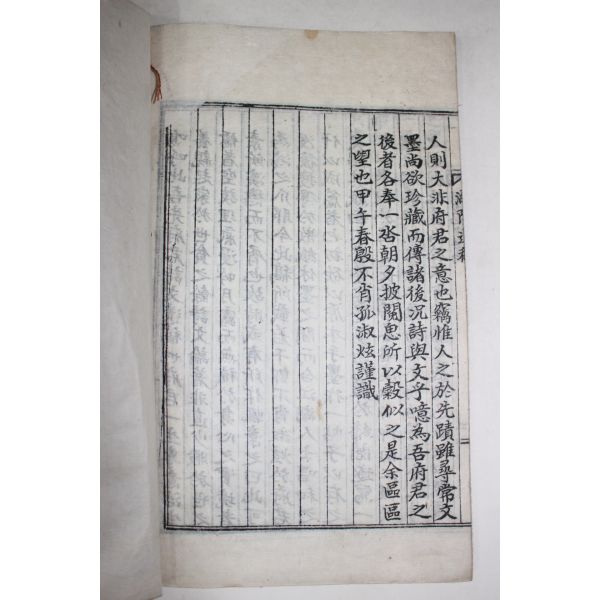 人則大非府君之意也竊惟人之於先蹟雖尋常文
墨尚欲珍藏而傳諸後況詩與文乎噫為吾府君之
後者各奉一呇朝夕披閱思所以穀似之是余區區
之望也甲午春殷不肖孤淑炫謹識